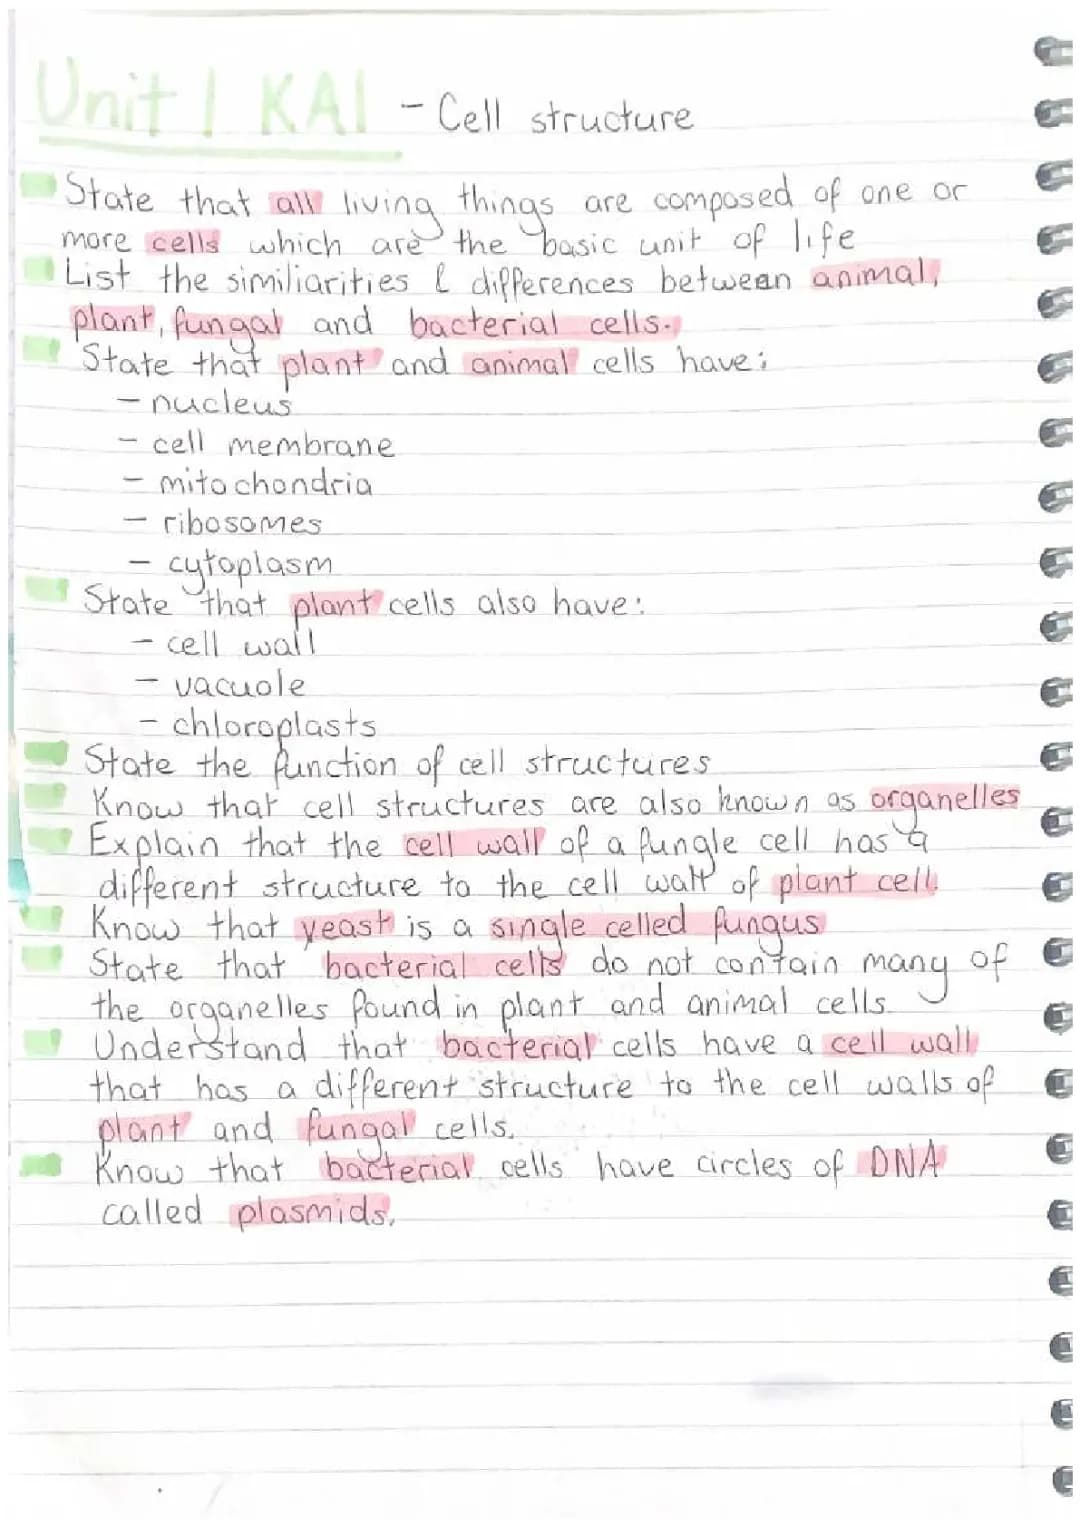 Unit 1 KA1 - Cell structure
State that all living things are composed of one or
more cells which are the basic unit of life
List the similiarities & differences between animal,
plant, fungal and bacterial cells.
State that plant and animal cells have:
- nucleus
- cell membrane
- mitochondria
- ribosomes
- cytoplasm
State that plant cells also have:
- cell wall
- vacuole
- chloroplasts
State the function of cell structures
Know that cell structures are also known as organelles
Explain that the cell wall of a fungle cell has a
different structure to the cell wall of plant cell.
Know that yeast is a single celled fungus
State that bacterial cells do not contain many of
the organelles found in plant and animal cells.
Understand that bacterial cells have a cell wall
that has a different structure to the cell walls of
plant and fungal cells.
Know that bacterial cells have circles of DNA
called plasmids.